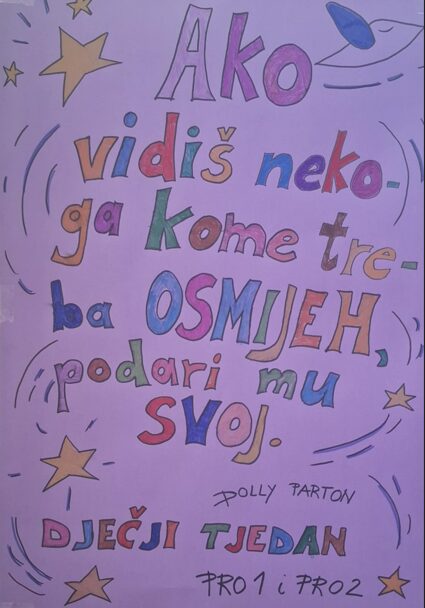 Ako
vidiš neko-
ga kome tre-
ba OSMIJEH,
podari mu
SVOJ.
DOLLY PARTON
DJEČJI TJEDAN
PRO1 i PRO2